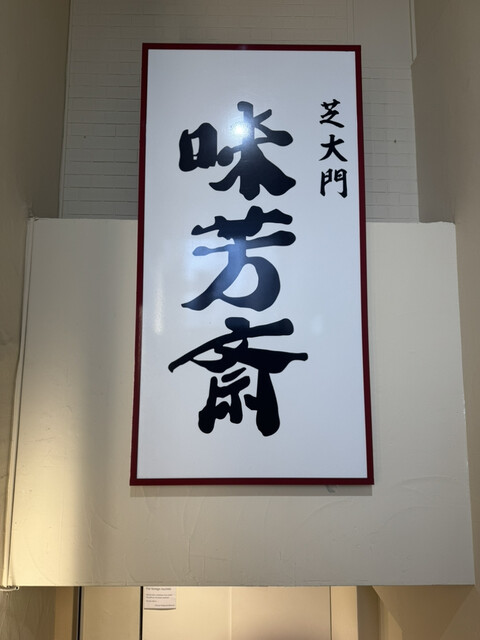 芝大門
味芳斎